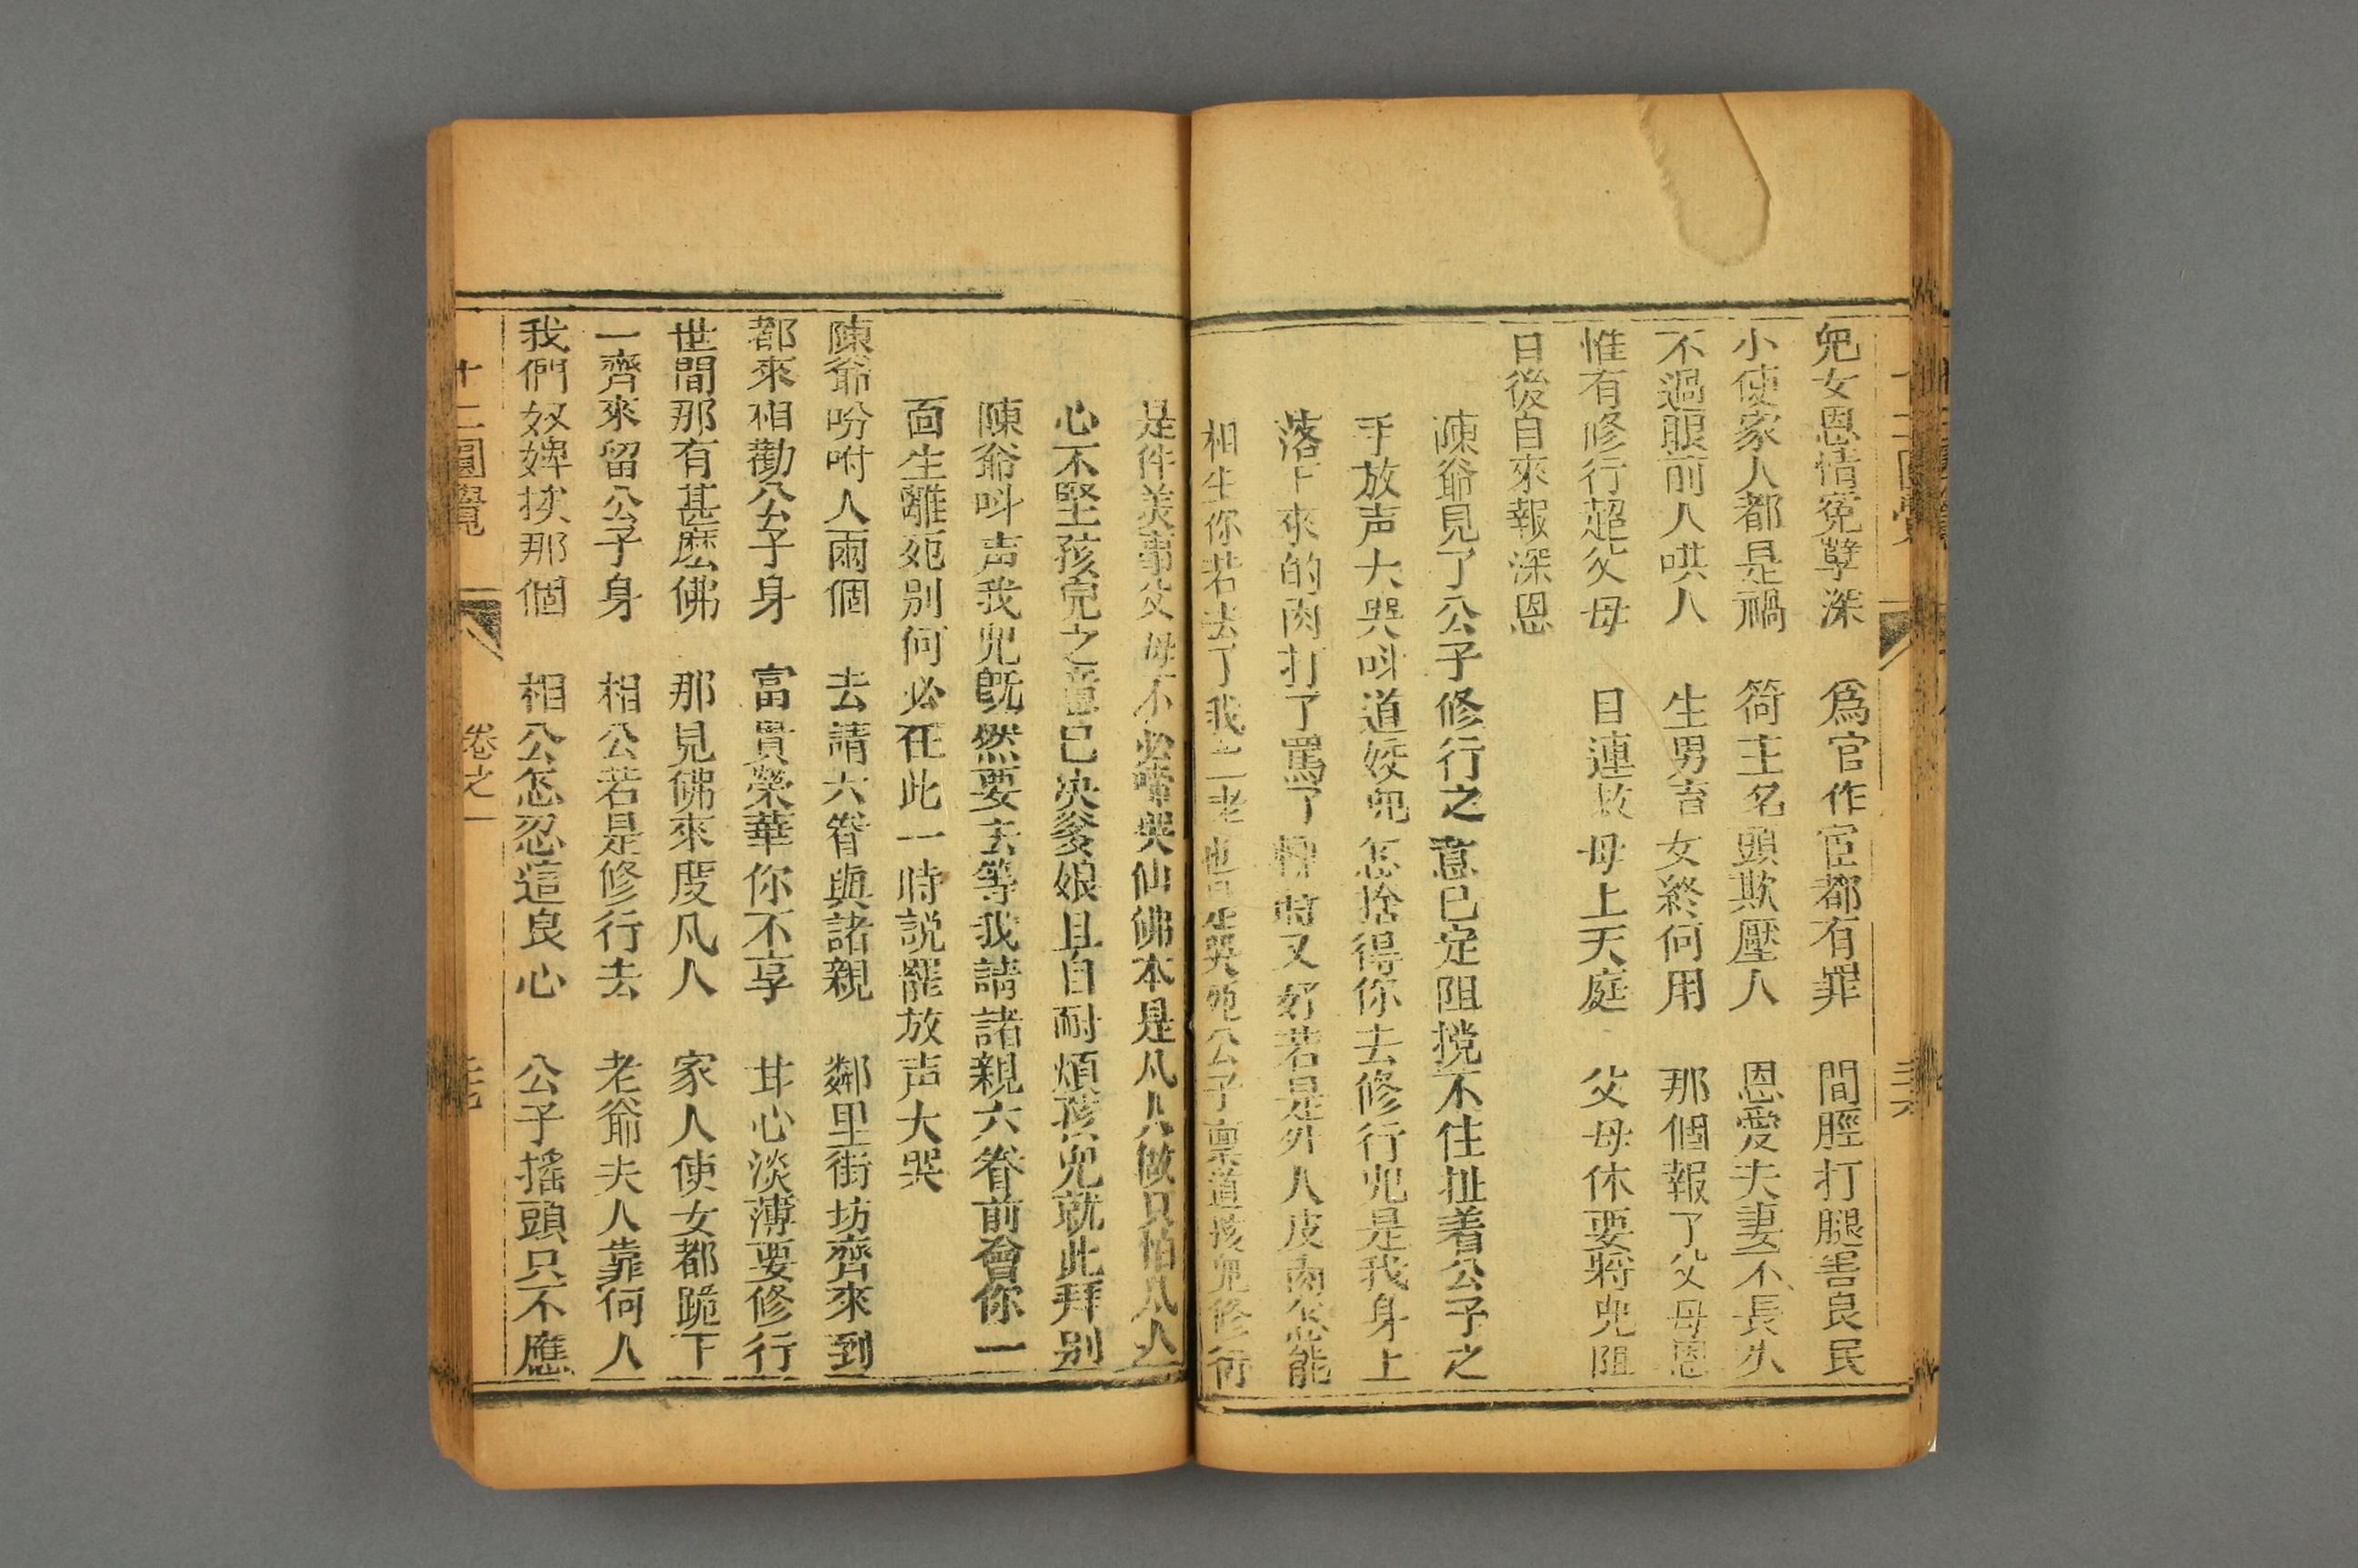 兒女恩情冤孽深 爲官作宦都有罪 間脛打腿害良民
小使家人都是禍 荷主名頭欺壓人 恩愛夫妻不長久
不過眼前人哄人 生男育女終何用 那個報了父母恩
惟有修行超父母 目連救母上天庭 父母休要將兒阻
日後自來報深恩
陳爺見了公子修行之意已定阻撓不住扯着公子之
手放声大哭呌道姣兒怎捨得你去修行兒是我身上
落下來的肉打了罵了轉時又好若是外人皮肉怎能
相生你若去了我之二老也是哭死公子禀道孩兒修行
是件美事父母不必啼哭仙佛本是凡人做只怕凡人
心不堅孩兒之意已决爹娘且自耐煩孩兒就此拜别
陳爺呌声我兒旣然要去等我請諸親六眷前會你一
面生離死别何必在此一時説罷放声大哭
陳爺吩咐人兩個 去請六眷與諸親 鄰里街坊齊來到
都來相勸公子身 富貴榮華你不享 甘心淡薄要修行
世間那有甚麽佛 那見佛來度凡人 家人使女都跪下
一齊來留公子身 相公若是修行去 老爺夫人靠何人
我們奴婢挨那個 相公怎忍這良心 公子搖頭只不應
十二圓覺 卷之一